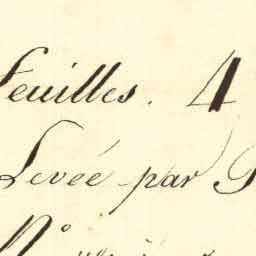 Feuilles. 4
Levée par
N°